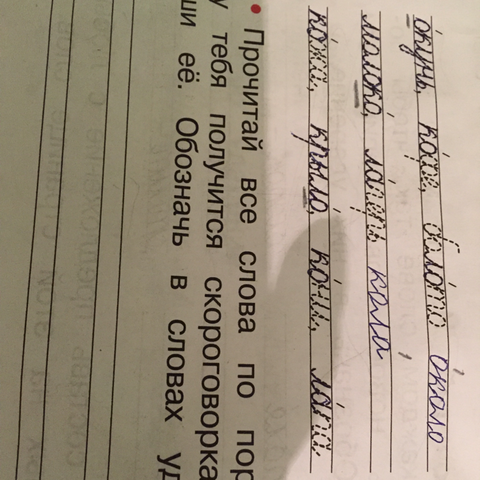 о́кунь, боло́то около
молоко́, ла́герь кола
ко́жа, крыло́, ко́ни, ла́па
• Прочитай все слова по пор
у тебя получится скороговорка
ши её. Обозначь в словах уд